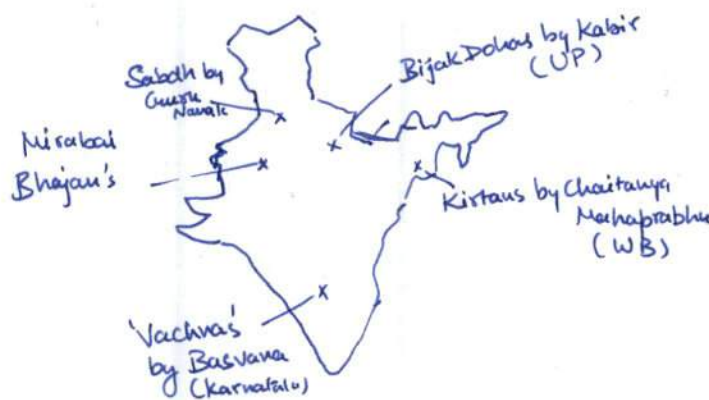 Sabdh by
Guru
Nanak
Bijak Dohas by Kabir
(UP)
Mirabai
Bhajan's
Kirtans by Chaitanya
Mahaprabhu
(WB)
'Vachnas'
by Basvana
(Karnataka)